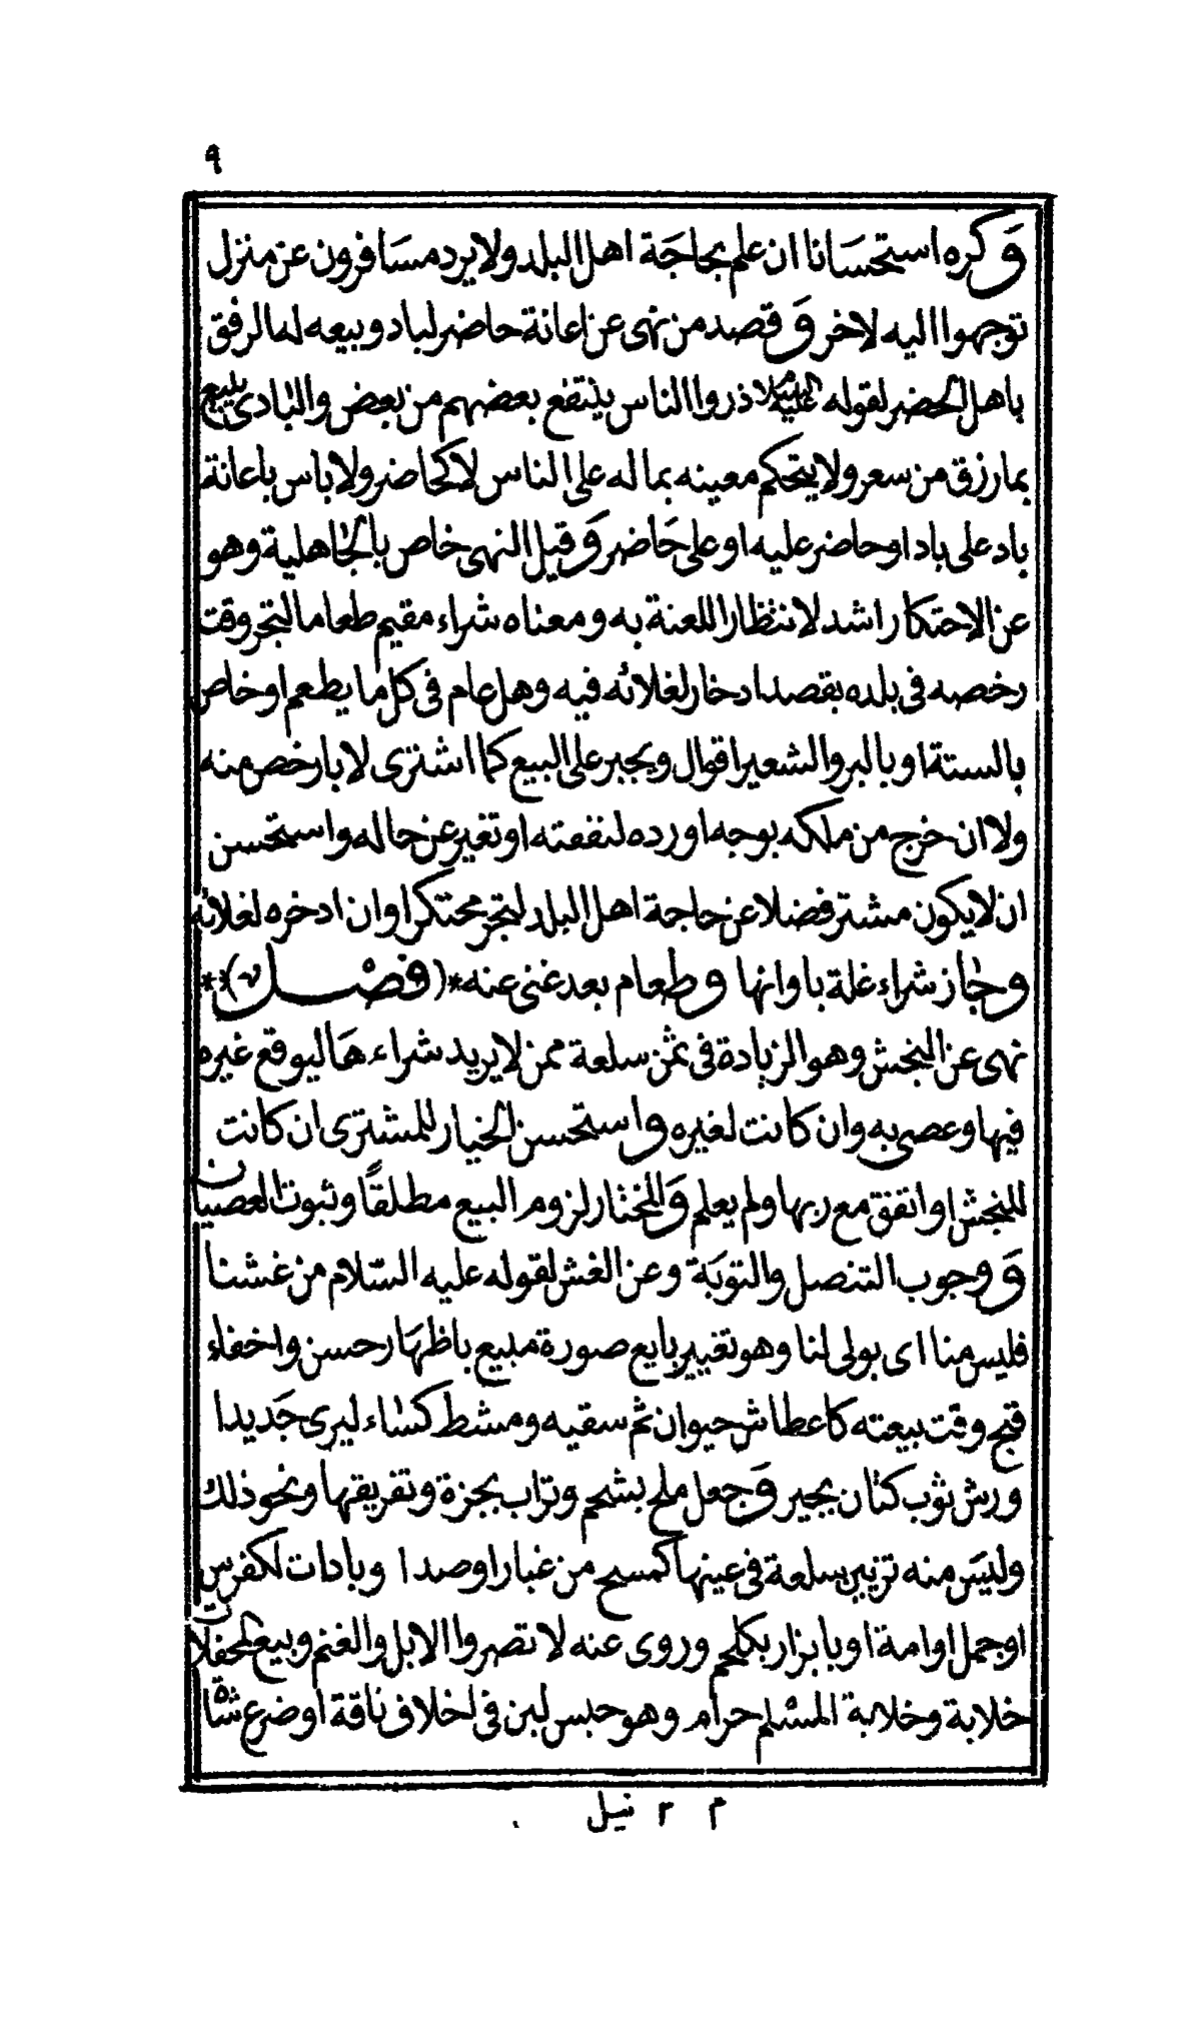 ٩
وكره استحسانا ان علم بحاجة اهل البلد ولا يرد مسافرون عن منزل
توجهوا اليه لاخر وقصد من نهى عن اعانة حاضر لباد وبيعه له الرفق
باهل الحضر لقوله عليه السلام ذروا الناس ينتفع بعضهم من بعض والبادى يبيع
بما رزق من سعر ولا يتحكم معينه بما له على الناس لا كحاضر ولا باس باعانة
باد على باد او حاضر عليه او على حاضر وقيل النهى خاص بالجاهلية وهو
عن الاحتكار اشد لانتظار اللعنة به ومعناه شراء مقيم طعاما لتجر وقت
رخصه فى بلده بقصد ادخار لغلائه فيه وهل عام فى كل ما يطعم او خاص
بالستة او بالبر والشعير اقوال ويجبر على البيع كما اشترى لا بارخص منه
ولا ان خرج من ملكه بوجه او رده لنفقته او تغير عن حاله واستحسن
ان لا يكون مشتر فضلا عن حاجة اهل البلد لتجر محتكرا وان ادخره لغلائه
وجاز شراء غلة باوانها وطعام بعد غنى عنه *( فصل )*
نهى عن النجش وهو الزيادة فى ثمن سلعة ممن لا يريد شراء ها ليوقع غيره
فيها وعصى به وان كانت لغيره واستحسن الخيار للمشترى ان كانت
للنجش او اتفق مع ربها ولم يعلم والمختار لزوم البيع مطلقًا وثبوت العصيان
ووجوب التنصل والتوبة وعن الغش لقوله عليه السلام من غشنا
فليس منا اى بولى لنا وهو تغيير بايع صورة مبيع باظهار حسن واخفاء
قبح وقت بيعته كاعطاش حيوان ثم سقيه ومشط كساء ليرى جديدا
ورش ثوب كتان بجير وجعل ملح بشحم وتراب بجزة وتفريقها ونحو ذلك
وليس منه تزيين سلعة فى عينها كمسح من غبار او صدا وبادات لكفرس
او جمل او امة او بابزار بكلحم وروى عنه لا تصروا الابل والغنم وبيع المحفلات
خلابة وخلابة المسلم حرام وهو حبس لبن فى اخلاف ناقة او ضرع شاة
م ٢ نيل